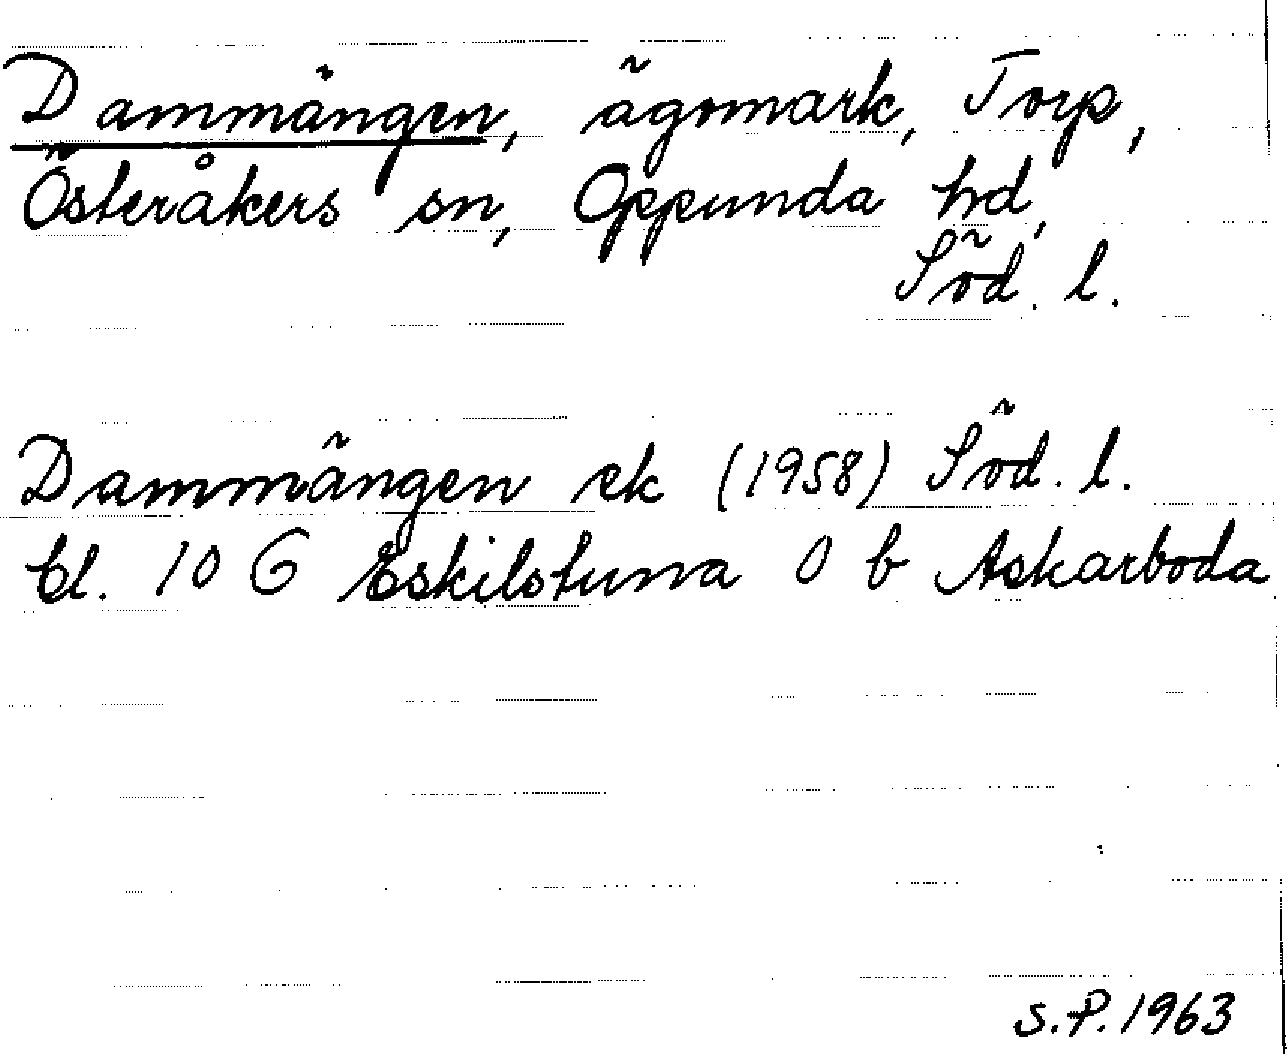 Dammängen, ägomark, Torp,
Österåkers sn, Oppunda hd,
Söd. l.
Dammängen ek (1958) Söd. l.
bl. 10 G Eskilstuna 0 b Askarboda
S.P. 1963